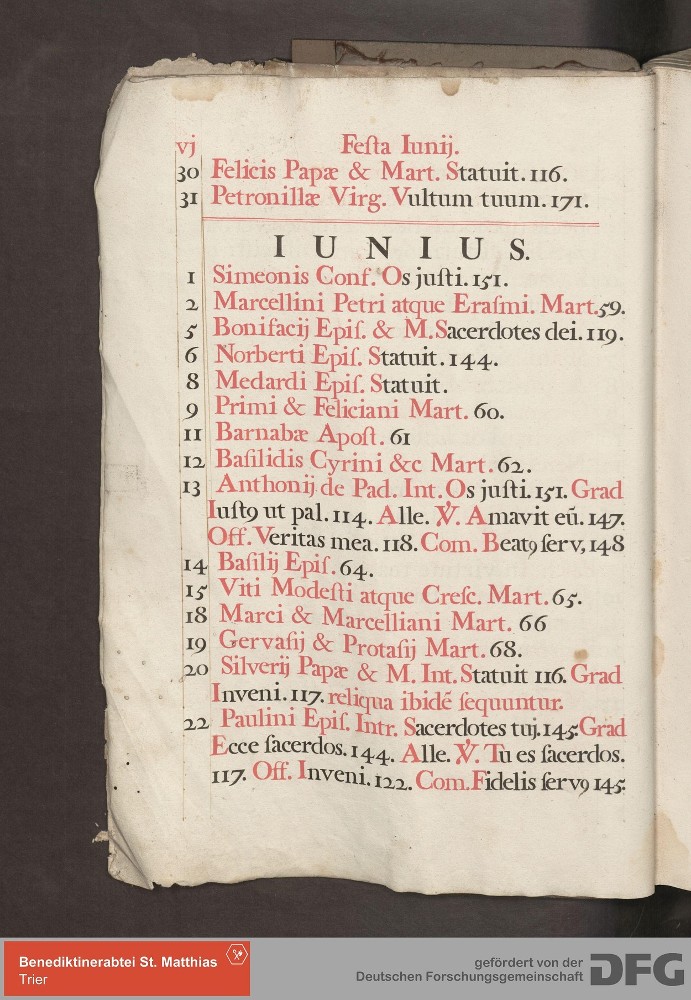 vj Feſta Iunij.
30 Felicis Papæ & Mart. Statuit. 116.
31 Petronillæ Virg. Vultum tuum. 171.
IUNIUS.
1 Simeonis Conf. Os juſti. 151.
2 Marcellini Petri atque Eraſmi. Mart. 59.
5 Bonifacij Epiſ. & M. Sacerdotes dei. 119.
6 Norberti Epiſ. Statuit. 144.
8 Medardi Epiſ. Statuit.
9 Primi & Feliciani Mart. 60.
11 Barnabæ Apoſt. 61
12 Baſilidis Cyrini &c Mart. 62.
13 Anthonij de Pad. Int. Os juſti. 151. Grad
Iuſtꝰ ut pal. 114. Alle. ℣. Amavit eū. 147.
Off. Veritas mea. 118. Com. Beatꝰ ſerv, 148
14 Baſilij Epiſ. 64.
15 Viti Modeſti atque Creſc. Mart. 65.
18 Marci & Marcelliani Mart. 66
19 Gervaſij & Protaſij Mart. 68.
20 Silverij Papæ & M. Int. Statuit 116. Grad
Inveni. 117. reliqua ibidē ſequuntur.
22 Paulini Epiſ. Intr. Sacerdotes tuj. 145. Grad
Ecce ſacerdos. 144. Alle. ℣. Tu es ſacerdos.
117. Off. Inveni. 122. Com. Fidelis ſervꝰ 145.
Benediktinerabtei St. Matthias
Trier
gefördert von der
Deutschen Forschungsgemeinschaft DFG